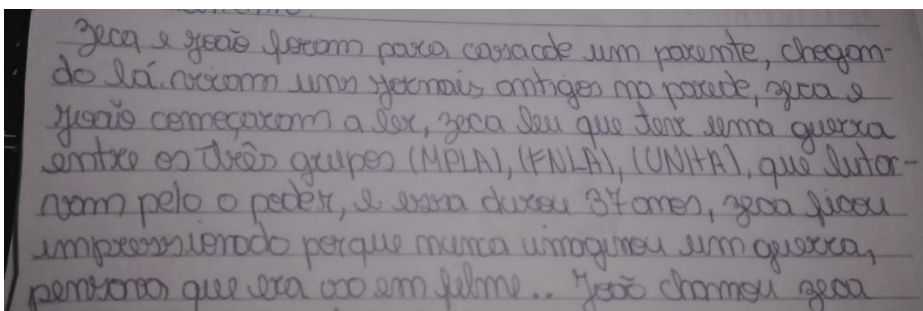 zeca e joão foram para casa de um parente, chegan-
do lá. viram uns jornais antigos na parede, zeca e
joão começaram a ler, zeca leu que teve uma guerra
entre os três grupos (MPLA), (FNLA), (UNITA), que luta-
vam pelo o poder, e essa durou 37 anos, zeca ficou
impressionado porque nunca imaginou um guerra,
pensava que era só em filme.. João chamou zeca